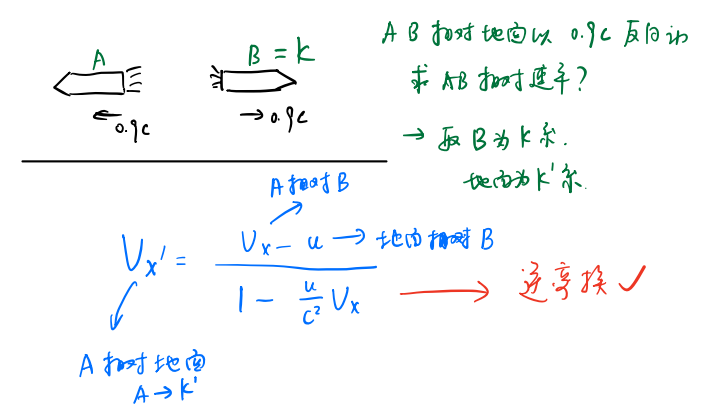 A
B = K
0.9c
0.9c
A B 相对地面以 0.9c 反向运动
求 AB 相对速率?
→ 取 B为 K系.
地面为 K'系.
A相对B
Vx' = (Vx - u) / (1 - u/c² Vx)
地面相对B
逆变换 ✓
A相对地面
A → K'